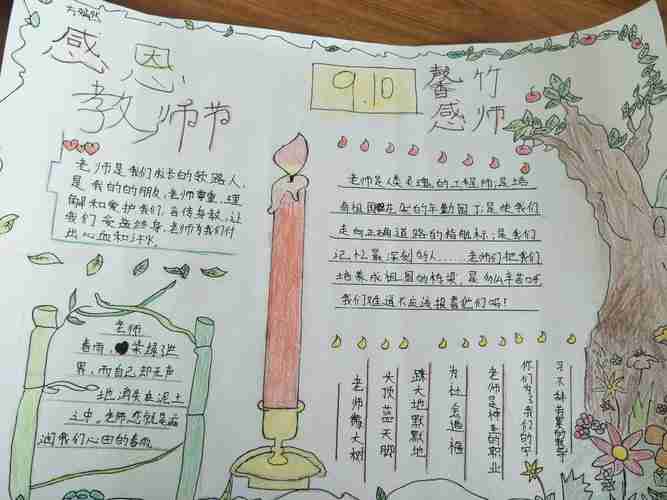 感恩
教师节
9.10
馨竹
感师
老师是我们成长的领路人,
是我的的朋友,老师尊重、理
解和爱护我们,言传身教,让
我们受益终身,老师为我们付
出心血和汗水。
老师是人类灵魂的工程师;是培
育祖国花朵的辛勤园丁;是使我们
走向正确道路的指航标;是我们
记忆最深刻的人……老师们把我们
培养成祖国的栋梁,是多么辛苦呀
我们难道不应该报答他们吗!
老师
春雨,染绿了世
界,而自己却无声
地消失在泥土
之中。老师您就是滋
润我们心田的春雨
老师像大树
头顶蓝天脚
踩大地默默地
为社会造福
老师是神圣的职业
你们为了我们的学